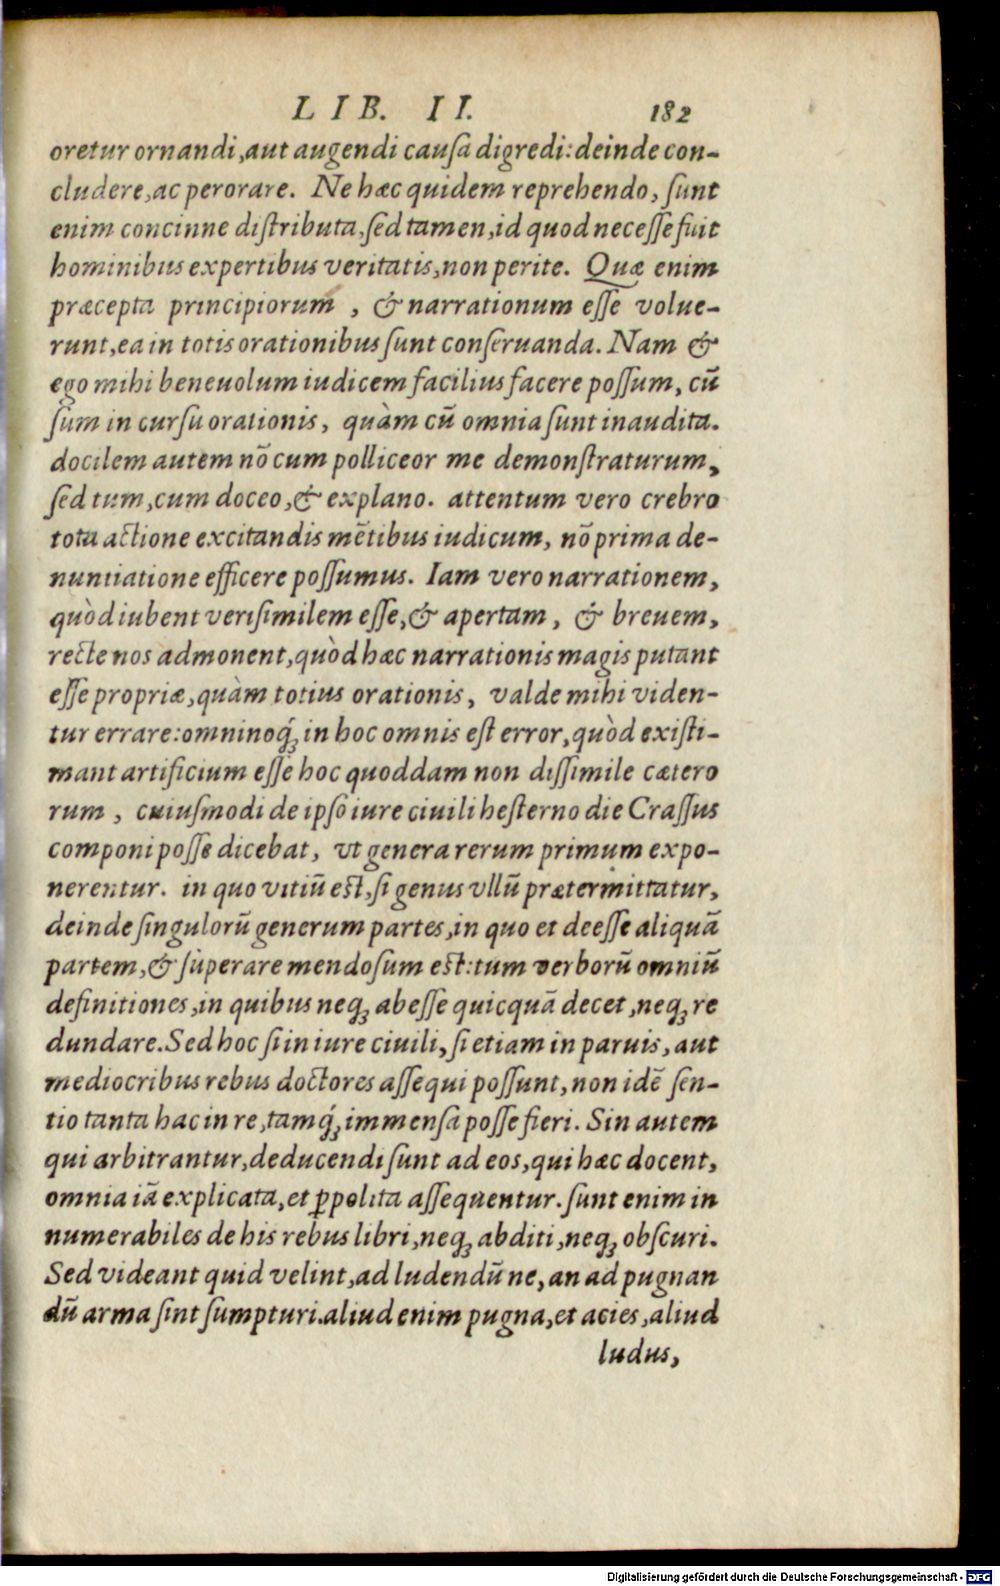 LIB. II. 182
oretur ornandi, aut augendi causa digredi: deinde con-
cludere, ac perorare. Ne hæc quidem reprehendo, sunt
enim concinne distributa, sed tamen, id quod necesse fuit
hominibus expertibus veritatis, non perite. Quæ enim
præcepta principiorum, & narrationum esse volue-
runt, ea in totis orationibus sunt conseruanda. Nam &
ego mihi beneuolum iudicem facilius facere possum, cū
sum in cursu orationis, quàm cū omnia sunt inaudita.
docilem autem nō cum polliceor me demonstraturum,
sed tum, cum doceo, & explano. attentum vero crebro
tota actione excitandis mētibus iudicum, nō prima de-
nuntiatione efficere possumus. Iam vero narrationem,
quòd iubent verisimilem esse, & apertam, & breuem,
recte nos admonent, quòd hæc narrationis magis putant
esse propriæ, quàm totius orationis, valde mihi viden-
tur errare: omninoq́; in hoc omnis est error, quòd existi-
mant artificium esse hoc quoddam non dissimile cætero
rum, cuiusmodi de ipso iure ciuili hesterno die Crassus
componi posse dicebat, vt genera rerum primum expo-
nerentur. in quo vitiū est, si genus vllū prætermittatur,
deinde singulorū generum partes, in quo et deesse aliquā
partem, & superare mendosum est: tum verborū omniū
definitiones, in quibus neq; abesse quicquā decet, neq; re
dundare. Sed hoc si in iure ciuili, si etiam in paruis, aut
mediocribus rebus doctores assequi possunt, non idē sen-
tio tanta hac in re, tamq́; immensa posse fieri. Sin autem
qui arbitrantur, deducendi sunt ad eos, qui hæc docent,
omnia iā explicata, et ꝑpolita assequentur. sunt enim in
numerabiles de his rebus libri, neq; abditi, neq; obscuri.
Sed videant quid velint, ad ludendū ne, an ad pugnan
dū arma sint sumpturi. aliud enim pugna, et acies, aliud
ludus,
Digitalisierung gefördert durch die Deutsche Forschungsgemeinschaft - DFG